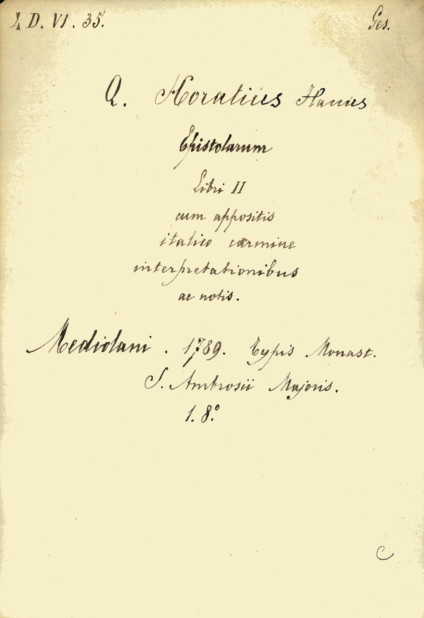 L D. VI. 35. Ges.
Q. Horatius Flaccus
Epistolarum
Libri II
cum appositis
italico carmine
interpretationibus
ac notis.
Mediolani. 1789. Typis Monast.
S. Ambrosii Majoris.
1. 8.º
C